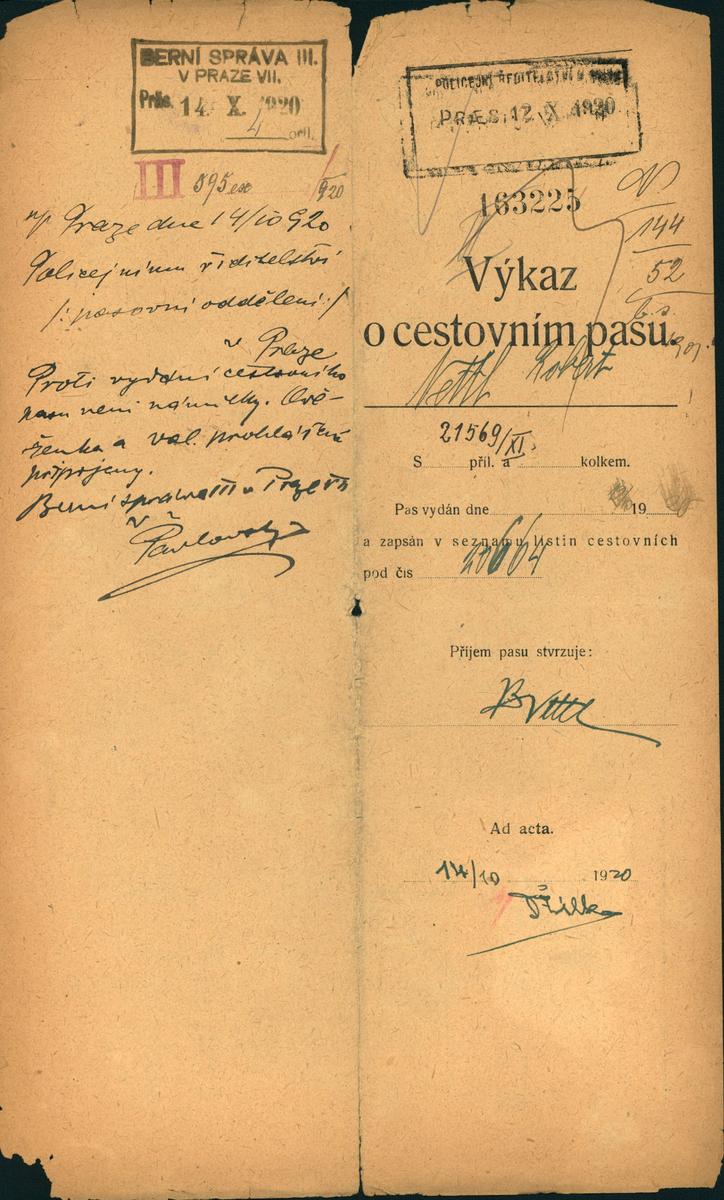 BERNÍ SPRÁVA III.
V PRAZE VII.
Präs. 14. X. 1920
4
III 595
920
Praze dne 14/10 920
Policejnímu ředitelství
/: pasovní oddělení :/
v Praze
Proti vydání cestovního
pasu není námitky. Ově-
řenka a vol. prohlášení
připojeny.
Berní správa III v Praze VII
Pavlovský
POLICEJNÍ ŘEDITELSTVÍ V PRAZE
PRÆS. 12. X. 1920
163225
144
52
Výkaz
o cestovním pasu.
Nettl Robert
21569/XI.
S příl. a kolkem.
Pas vydán dne 19
a zapsán v seznamu listin cestovních
pod čís 20664
Příjem pasu stvrzuje:
Ad acta.
14/10 1920